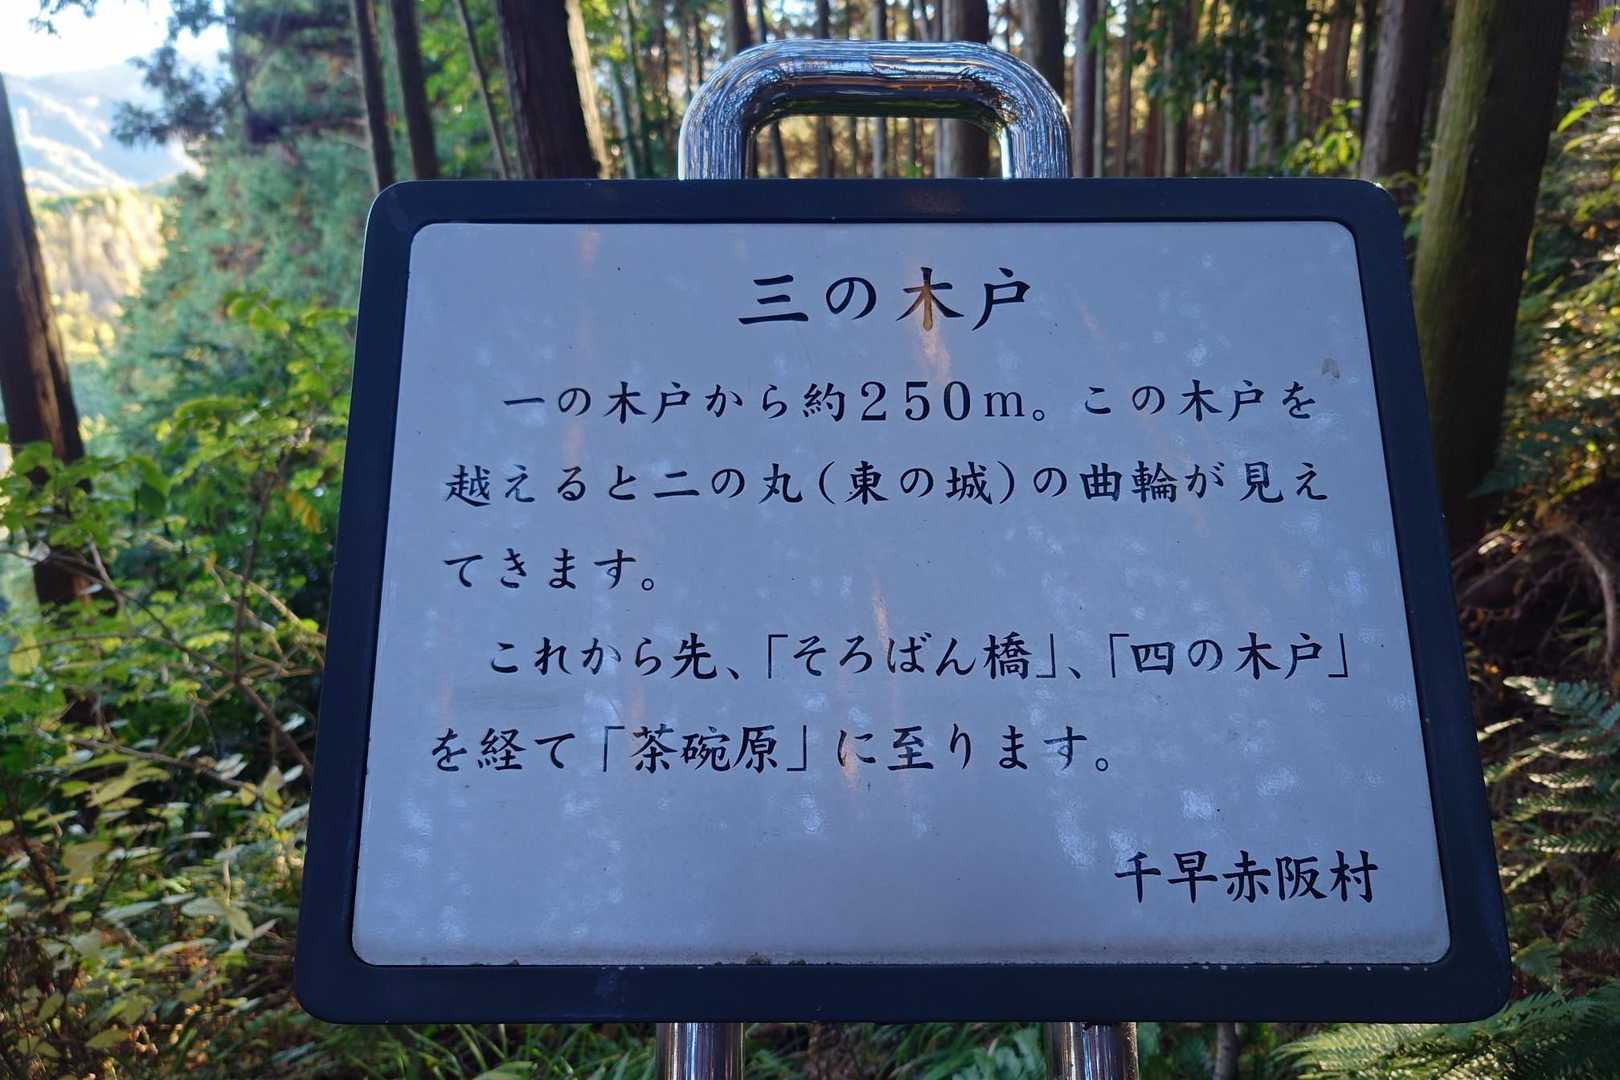 三の木戸
一の木戸から約250m。この木戸を
越えると二の丸(東の城)の曲輪が見え
てきます。
これから先、「そろばん橋」、「四の木戸」
を経て「茶碗原」に至ります。
千早赤阪村